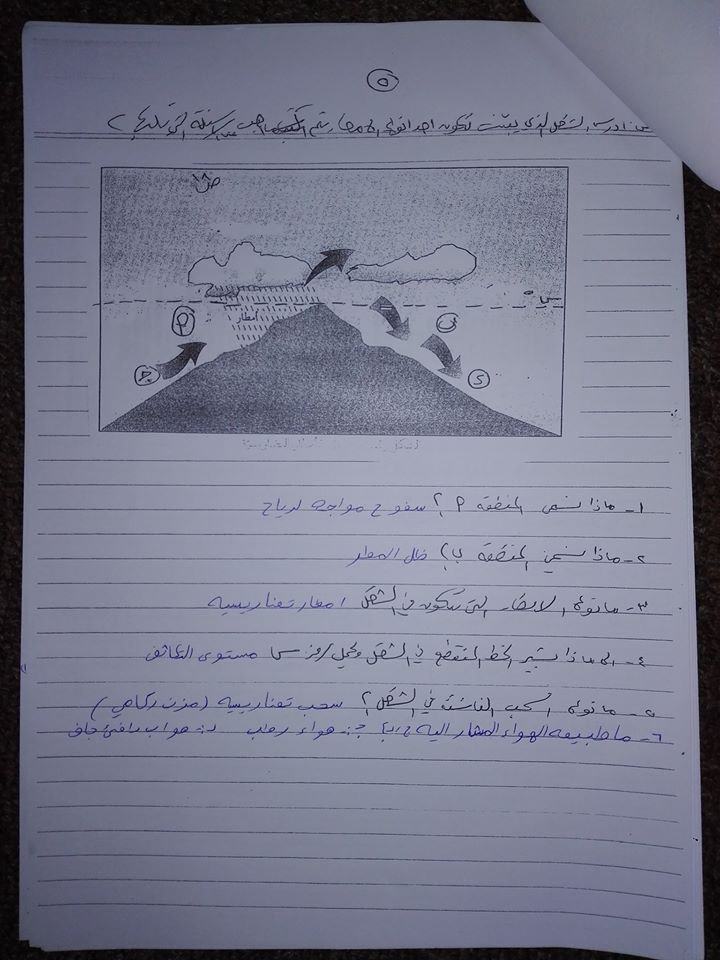 ٥
ادرس الشكل الذي يبين تكون احد انواع الامطار ثم اجب عن الاسئلة التي تليها ؟
ص١٨
س
م
امطار
ب
جـ
د
١- ماذا نسمي المنطقة م ؟ سفوح مواجه لرياح
٢- ماذا نسمي المنطقة ب ؟ ظل المطر
٣- مانوع الامطار التي تتكون في الشكل امطار تضاريسيه
٤- الى ماذا يشير الخط المتقطع في الشكل ويحمل رمز س مستوى التكاثف
٥- مانوع السحب الناشئة في الشكل ؟ سحب تضاريسيه (مزن ركامي)
٦- ماطبيعه الهواء المشار اليه جـ: هواء رطب د: هواء دافئ جاف